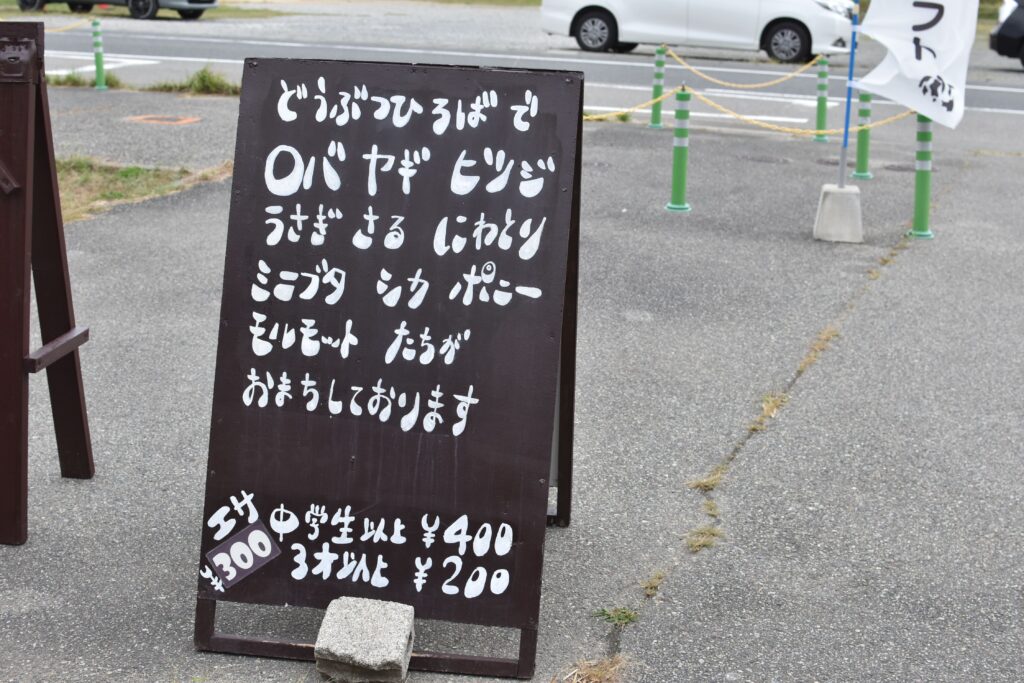 どうぶつひろばで
ロバ ヤギ ヒツジ
うさぎ さる にわとり
ミニブタ シカ ポニー
モルモット たちが
おまちしております
エサ
¥300
中学生以上 ¥400
3才以上 ¥200
フト